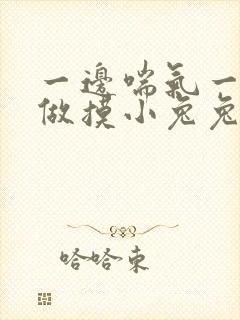 一邊喘氣一
做摸小兔兔
哈哈東